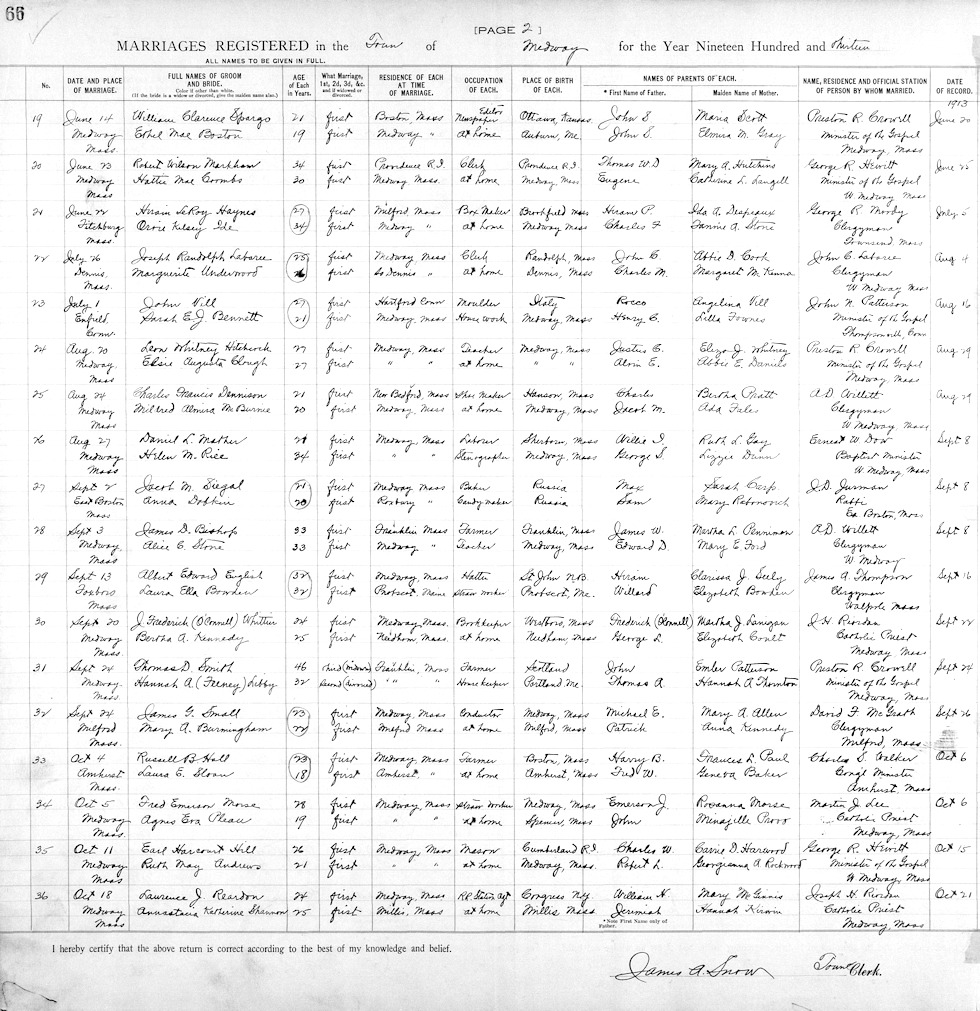 66
[PAGE 2 ]
MARRIAGES REGISTERED in the Town of Medway for the Year Nineteen Hundred and thirteen
ALL NAMES TO BE GIVEN IN FULL.
No. DATE AND PLACE OF MARRIAGE. FULL NAMES OF GROOM AND BRIDE. Color if other than white. (If the bride is a widow or divorced, give the maiden name also.) AGE of Each in Years. What Marriage, 1st, 2d, 3d, &c. and if widowed or divorced. RESIDENCE OF EACH AT TIME OF MARRIAGE. OCCUPATION OF EACH. PLACE OF BIRTH OF EACH. NAMES OF PARENTS OF EACH. * First Name of Father. Maiden Name of Mother. NAME, RESIDENCE AND OFFICIAL STATION OF PERSON BY WHOM MARRIED. DATE OF RECORD.
1913
19 June 14 William Clarence Spargo 21 first Boston, Mass Editor Newspaper Ottawa, Kansas. John S Maria Scott Preston R. Crowell June 20
Medway Ethel Mae Boston 19 first Medway " at home Auburn, Me. John S. Elmira M. Gray Minister of the Gospel
Mass. Medway, Mass
20 June 23 Robert Wilson Markham 34 first Providence R.I. Clerk Providence R.I. Thomas W.D Mary A. Hutchins George R. Hewitt June 25
Medway Hattie Mae Coombs 30 first Medway Mass. at home Medway, Mass Eugene Catherine L. Minister of the Gospel
Mass W. Medway Mass
21 June 22 Hiram LeRoy Haynes 27 first Milford, Mass Box Maker Brookfield Mass Hiram P. Ida A. Despeaux George R. Moody July 5
Fitchburg Orore Kelsey Ide 34 first Medway " at home Medway, Mass Charles F Fannie A. Stone Clergyman
Mass. Townsend Mass
22 July 26 Joseph Randolph Laboree 25 first Medway Mass Clerk Randolph, Mass John C. Abbie D. Cook John C. Laboree Aug 4
Dennis. Marguerite Underwood first So Dennis " at home Dennis, Mass Charles M. Margaret McKenna Clergyman
Mass. W Medway Mass
23 July 1 John Vill 27 first Hartford Conn Moulder Italy Rocco Angelina Vill John N. Patterson Aug 16
Enfield. Sarah E.J. Bennett 21 first Medway, Mass House work Medway, Mass Henry C. Lilla Fownes Minister of the Gospel
Conn. Thompsonville, Conn
24 Aug 20 Leon Whitney Hitchcock 27 first Medway, Mass Teacher Medway, Mass Justus C. Eliza J. Whitney Preston R. Crowell Aug 29
Medway. Elsie Augusta Clough 27 first " " at home " " Alvin E. Abbie E. Daniels Minister of the Gospel
Mass Medway Mass
25 Aug 24 Charles Francis Dennison 21 first New Bedford, Mass Shoe Maker Hanson, Mass Charles Bertha Pratt A.D. Willett Aug 29
Medway Mildred Almira McBurnie 20 first Medway, Mass at home Medway, Mass Jacob M. Ada Fales Clergyman
Mass W Medway Mass
26 Aug 27 Daniel L. Mather 21 first Medway, Mass Laborer Sherborn, Mass Willie I. Ruth L. Gay Ernest W. Dow Sept 8
Medway Helen M. Rice 34 first " " Stenographer Medway, Mass George S. Lizzie Dunn Baptist Minister
Mass W Medway, Mass
27 Sept 2 Jacob M. Siegal 21 first Medway Mass Baker Russia Max Sarah Carp J.D. Jurman Sept 8
East Boston Anna Dobkin 20 first Roxbury " Candy maker Russia Sam Mary Rabonovich Rabbi
Mass Ea Boston, Mass
28 Sept 3 James D. Bishop 33 first Franklin Mass Farmer Franklin, Mass James W. Martha L. Penniman A.D. Willett Sept 8
Medway, Alice C. Stone 33 first Medway " Teacher Medway, Mass Edward D. Mary E. Ford Clergyman
Mass W. Medway
29 Sept 13 Albert Edward English 32 first Medway, Mass Hatter St John N.B. Hiram Clarissa J. Seely James A. Thompson Sept 16
Foxboro Laura Ella Bowden 32 first Penobscot, Maine Straw worker Penobscot, Me. Willard Elizabeth Bowden Clergyman
Mass Walpole Mass
30 Sept 20 J. Frederick (O'Connell) Whittier 24 first Medway Mass. Bookkeeper Westboro, Mass Frederick (O'Connell) Martha J. Lanigan J.H. Riordan Sept 22
Medway Bertha A. Kennedy 25 first Needham Mass. at home Needham, Mass George L. Elizabeth Coult Catholic Priest
Mass. Medway Mass
31 Sept 24 Thomas D. Smith 46 third (widowed) Franklin, Mass Farmer Scotland John Emler Patterson Preston R. Crowell Sept 24
Medway Hannah A. (Feeney) Libby 32 second (divorced) " " House keeper Portland Me. Thomas A. Hannah A Thornton Minister of the Gospel
Mass. Medway, Mass
32 Sept 24 James G. Small 23 first Medway, Mass Conductor Medway, Mass Michael C. Mary A. Allen David F. McGrath Sept 26
Milford Mary A. Burmingham 22 first Milford Mass at home Milford, Mass Patrick Anna Kennedy Clergyman
Mass. Milford, Mass
33 Oct 4 Russell B. Hall 23 first Medway, Mass Farmer Boston, Mass Harry B. Frances L. Paul Charles S. Walker Oct 6
Amherst Laura E. Sloan 18 first Amherst, " at home Amherst, Mass Fred W. Geneva Baker Congl Minister
Mass Amherst, Mass
34 Oct 5 Fred Emerson Morse 28 first Medway, Mass Straw Worker Medway, Mass Emerson J. Rosanna Morse Martin J. Lee Oct 6
Medway Agnes Eva Pleau 19 first " " at home Spencer, Mass John Catholic Priest
Mass. Medway, Mass
35 Oct 11 Earl Harcourt Hill 26 first Medway, Mass Mason Cumberland R.I. Charles W. Carrie D. Harwood George R. Hewitt Oct 15
Medway Ruth May Andrews 21 first " " at home Medway, Mass. Robert L. Georgianna A Rockwood Minister of the Gospel
Mass W Medway, Mass
36 Oct 18 Lawrence J. Reardon 24 first Medway, Mass R.R. Station Agt Congress N.Y. William H. Mary McGinnis Joseph H. Riordan Oct 21
Medway Annastasia Katherine Shannon 25 first Millis, Mass at home Millis Mass Jeremiah Hannah Kirwin Catholic Priest
Mass * Note First Name only of Father. Medway, Mass
I hereby certify that the above return is correct according to the best of my knowledge and belief.
James A. Snow Town Clerk.